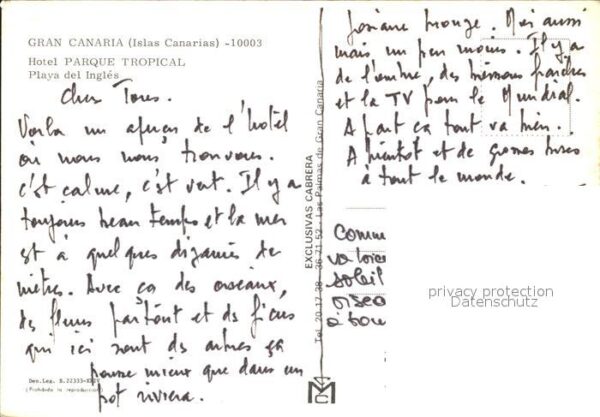 GRAN CANARIA (Islas Canarias) -10003
Hotel PARQUE TROPICAL
Playa del Inglés
Cher Tous.
Voilà un aperçu de l'hôtel
où nous nous trouvons.
c'est calme, c'est vert. Il y a
toujours beau temps et la mer
est à quelques dizaines de
mètres. Avec ça des oiseaux,
des fleurs partout et des ficus
qui ici sont des arbres ça
pousse mieux que dans un
pot riviera.
Dep. Leg. B. 22333-XXIV
(Prohibida la reproducción)
EXCLUSIVAS CABRERA
Tel. 20.17.38 - 36 71 52 - Las Palmas de Gran Canaria
MC
Josiane bronze. Moi aussi
mais un peu moins. Il y a
de l'ombre, des boissons fraîches
et la TV pour le Mundial.
A part ça tout va bien.
A bientôt et de grosses bises
à tout le monde.
Comm
valoris
soleil
oisea
à tou
privacy protection
Datenschutz